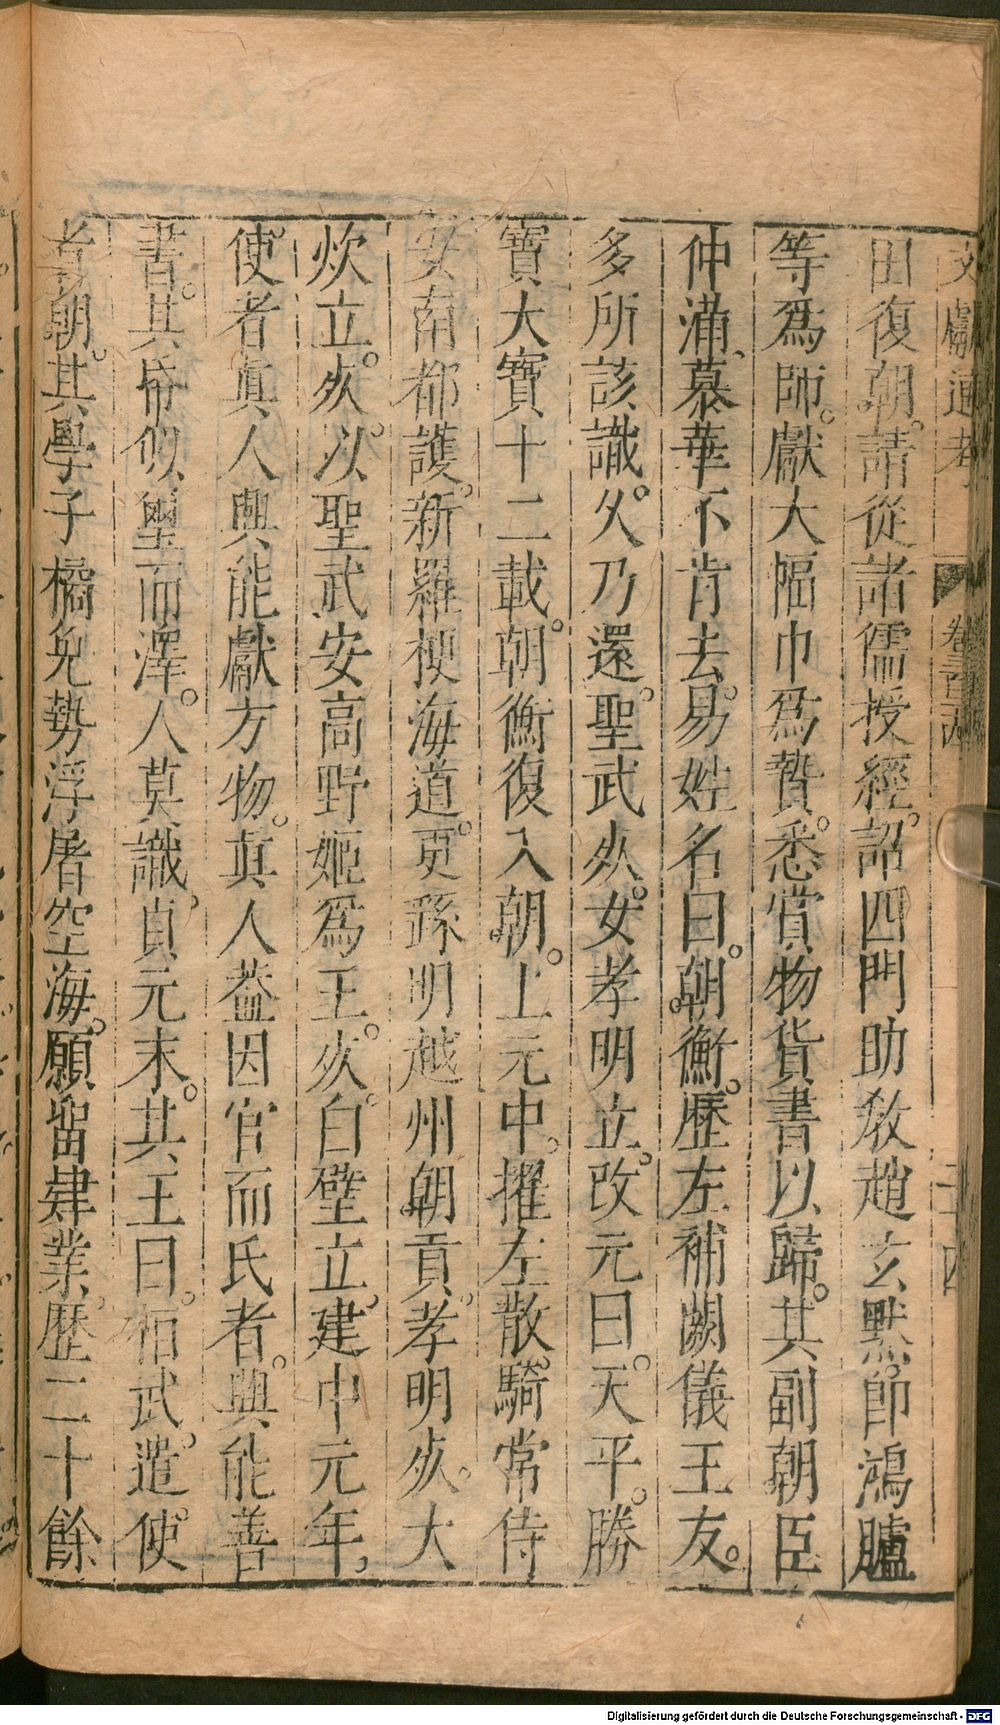 文獻通考 卷三百 二十四
田復朝。請從諸儒授經。詔四門助敎趙玄默。卽鴻臚
等爲師。獻大幅巾爲贄。悉賞物貨書以歸。其副朝臣
仲滿、慕華不肯去。易姓名曰。朝衡。歷左補闕儀王友。
多所該識。久乃還。聖武死。女孝明立。改元曰。天平。勝
寶大寶十二載。朝衡復入朝。上元中。擢左散騎常侍
安南都護。新羅梗海道。更繇明越州朝貢。孝明死。大
炊立。死。以聖武安高野姬爲王。死。白璧立。建中元年,
使。者眞人興能獻方物。眞人葢因官而氏者。興能善
書。其帋似璽而澤。人莫識。貞元末。其王曰。桓武。遣。使
者朝。其學子橘免勢浮屠空海。願留肄業。歷二十餘
Digitalisierung gefördert durch die Deutsche Forschungsgemeinschaft - DFG